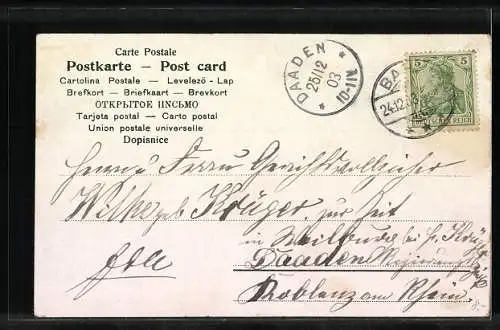 Carte Postale
Postkarte — Post card
Cartolina Postale — Levelező - Lap
Brefkort — Briefkaart — Brevkort
ОТКРЫТОЕ ПИСЬМО
Tarjeta postal — Carto postal
Union postale universelle
Dopisnice
DAADEN
25/12
03
10-11N
BA
24.12.03
5 5
DEUTSCHES REICH
Frau Gerichtsvollzieher
geb. Krüger, zur Zeit
in Weilburg bei H. Krüger
Daaden
Koblenz am Rhein